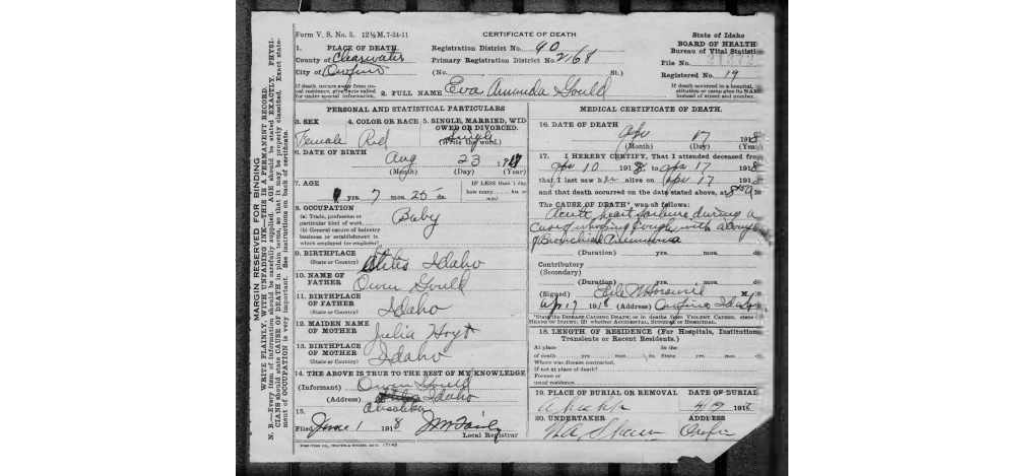 Form V. S. No. 5. 12½M. 7-24-11
CERTIFICATE OF DEATH
State of Idaho
BOARD OF HEALTH
Bureau of Vital Statistics
1. PLACE OF DEATH.
County of Clearwater
City of Orofino
Registration District No. 90
Primary Registration District No. 2168
(No. St.)
File No.
Registered No. 19
If death occurs away from usual residence, give facts called for under special information.
If death occurred in a hospital, institution or camp give its NAME instead of street and number.
2. FULL NAME Eva Amanda Gould
PERSONAL AND STATISTICAL PARTICULARS
3. SEX
Female
4. COLOR OR RACE
Red
5. SINGLE, MARRIED, WIDOWED OR DIVORCED.
Single
(Write the word.)
6. DATE OF BIRTH
Aug 23
(Month) (Day) (Year)
7. AGE
yrs. 7 mos. 25 ds.
IF LESS than 1 day
8. OCCUPATION
Baby
(a) Trade, profession or particular kind of work
(b) General nature of industry business or establishment in which employed (or employer)
9. BIRTHPLACE
(State or Country)
Stites Idaho
10. NAME OF FATHER
Owen Gould
11. BIRTHPLACE OF FATHER
(State or Country)
Idaho
12. MAIDEN NAME OF MOTHER
Julia Hoyt
13. BIRTHPLACE OF MOTHER
(State or Country)
Idaho
14. THE ABOVE IS TRUE TO THE BEST OF MY KNOWLEDGE
(Informant) Owen Gould
(Address) Idaho
15.
Filed June 1 1918
Local Registrar
MEDICAL CERTIFICATE OF DEATH.
16. DATE OF DEATH
Apr 17 1918
(Month) (Day) (Year)
17. I HEREBY CERTIFY, That I attended deceased from
Apr 10 1918 to Apr 17 1918
that I last saw her alive on Apr 17 1918
and that death occurred on the date stated above, at
The CAUSE OF DEATH* was as follows:
Acute heart failure during a
case of whooping cough with
Bronchial Pneumonia
(Duration) yrs. mos. ds.
Contributory
(Secondary)
(Duration) yrs. mos. ds.
(Signed)
Apr 17 1918 (Address) Orofino Idaho
*State the DISEASE CAUSING DEATH, or in deaths from VIOLENT CAUSES, state MEANS OF INJURY, (2) whether ACCIDENTAL, SUICIDAL or HOMICIDAL.
18. LENGTH OF RESIDENCE (For Hospitals, Institutions, Transients or Recent Residents.)
At place of death yrs. mos. ds. In the State yrs. mos. ds.
Where was disease contracted,
If not at place of death?
Former or
usual residence
19. PLACE OF BURIAL OR REMOVAL
DATE OF BURIAL
20. UNDERTAKER
ADDRESS
MARGIN RESERVED FOR BINDING
WRITE PLAINLY, WITH UNFADING INK—THIS IS A PERMANENT RECORD.
N. B.—Every item of information should be carefully supplied. AGE should be stated EXACTLY. PHYSICIANS should state CAUSE OF DEATH in plain terms, so that it may be properly classified. Exact statement of OCCUPATION is very important. See instructions on back of certificate.